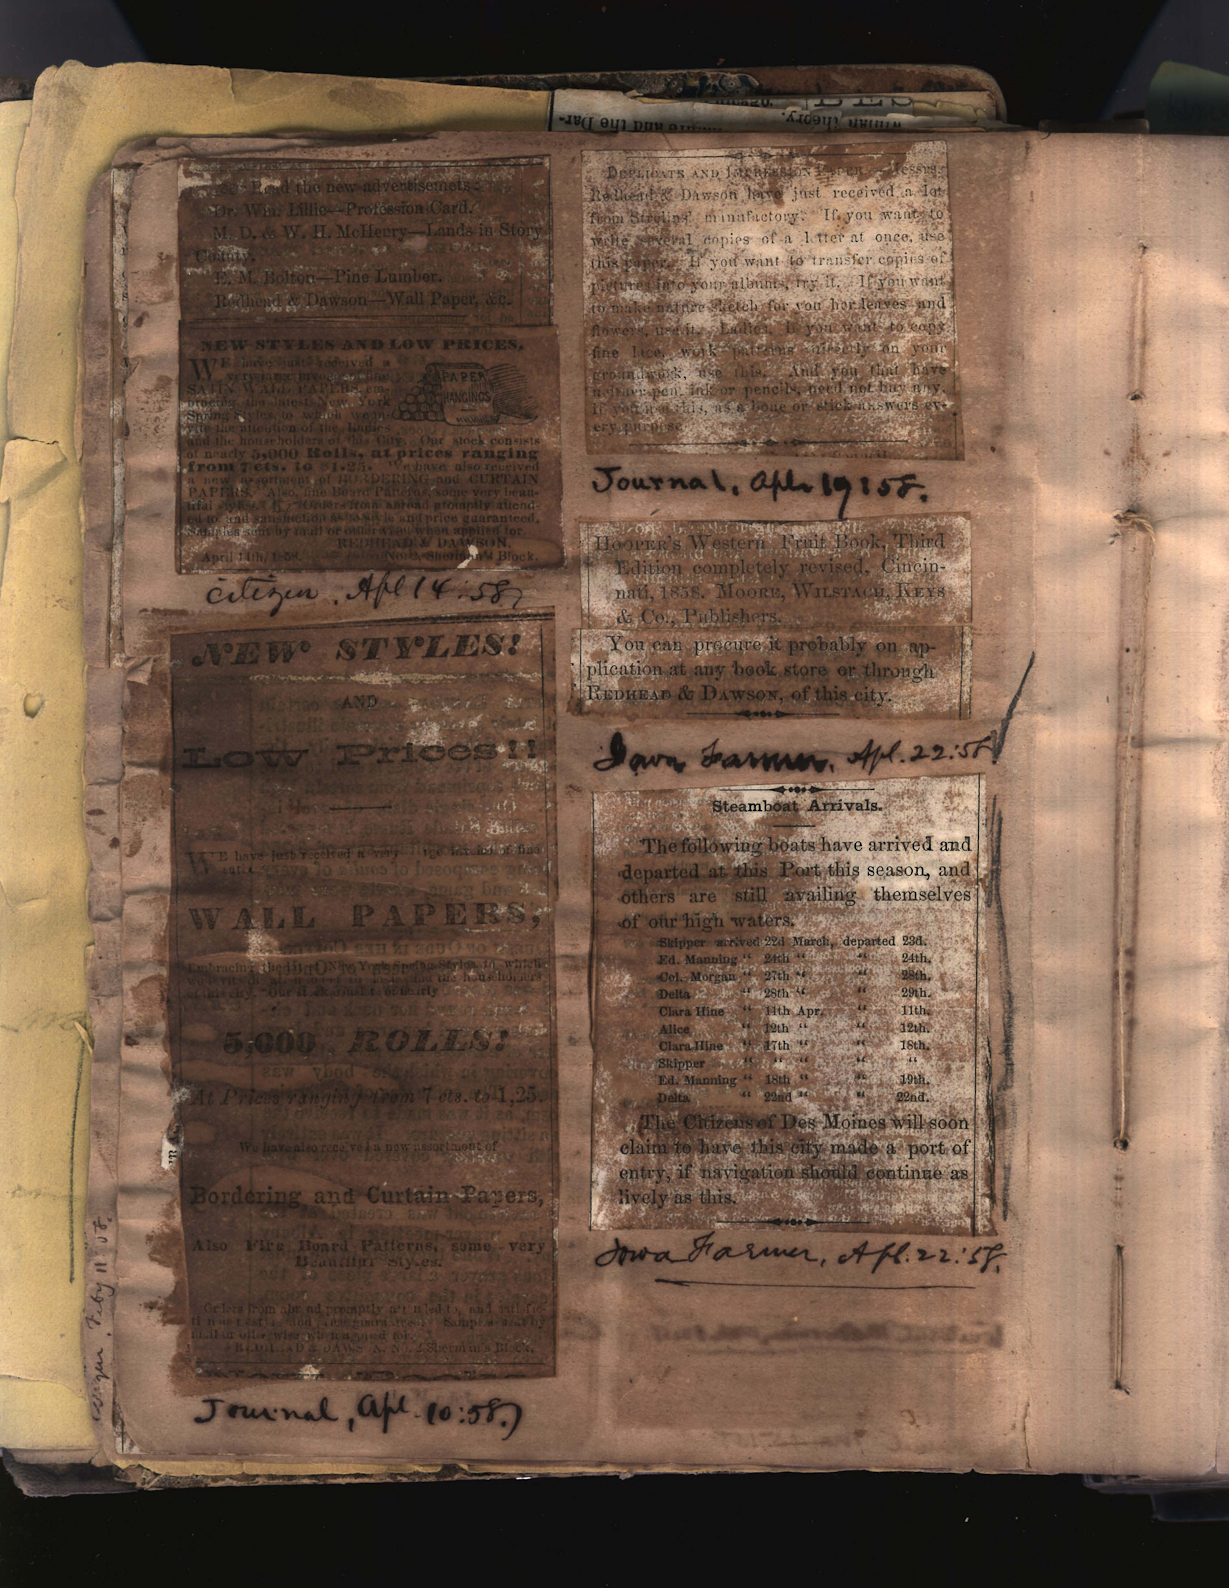 Read the new advertisemets:
Dr. Wm. Lillie—Profession Card.
M. D. & W. H. McHenry—Lands in Story
County.
E. M. Bolton—Pine Lumber.
Redhead & Dawson—Wall Paper, &c.
NEW STYLES AND LOW PRICES.
WE have just received a
SATIN WALL PAPERS,
the latest New York
Spring Styles, to which we
the attention of the Ladies
and the householders of this City. Our stock consists
of nearly 5,000 Rolls, at prices ranging
from 7 cts. to $1.25. We have also received
a new assortment of BORDERING and CURTAIN
PAPERS. Also, fine Board Patterns, some very beau-
tiful styles. Orders from abroad promptly attend-
ed to and satisfaction as to style and price guaranteed.
Samples sent by mail or otherwise when applied for.
REDHEAD & DAWSON,
April 14th, 1858. North Sherman's Block.
PAPER
HANGINGS
citizen, Apl 14:58,
NEW STYLES!
AND
Low Prices!!
WE have just received a very large invoice of fine
WALL PAPERS,
Embracing the New York Spring Styles to which
5,000 ROLLS!
At Prices ranging from 7 cts. to 1,25.
We have also received a new assortment of
Bordering and Curtain Papers,
Also Fire Board Patterns, some very
Beautiful Styles.
Orders from abroad promptly attended to, and satisfac-
REDHEAD & DAWSON, No. 2 Sherman's Block.
Journal, Apl. 10:58,
DUPLICATE AND IMPRESSION PAPER.—Messrs.
Redhead & Dawson have just received a lot
from manufactory. If you want to
write several copies of a letter at once, use
this paper. If you want to transfer copies of
pictures into your albums, try it. If you want
to make nature sketch for you her leaves and
flowers, use it. Ladies, if you want to copy
fine lace, work patterns directly on your
groundwork, use this. And you that have
neither pen, ink or pencils, need not buy any,
if you use this, as a bone or stick answers ev-
ery purpose
Journal, Apl. 19:58.
HOOPER'S Western Fruit Book, Third
Edition completely revised, Cincin-
nati, 1858. MOORE, WILSTACH, KEYS
& Co., Publishers.
You can procure it probably on ap-
plication at any book store or through
REDHEAD & DAWSON, of this city.
Iowa Farmer, Apl. 22:58
Steamboat Arrivals.
The following boats have arrived and
departed at this Port this season, and
others are still availing themselves
of our high waters.
Skipper arrived 22d March, departed 23d.
Ed. Manning “ 24th “ “ 24th.
Col. Morgan “ 27th “ “ 28th.
Delta “ 28th “ “ 29th.
Clara Hine “ 11th Apr. “ 11th.
Alice “ 12th “ “ 12th.
Clara Hine “ 17th “ “ 18th.
Skipper “ “ “ “ “
Ed. Manning “ 18th “ “ 19th.
Delta “ 22nd “ “ 22nd.
The Citizens of Des Moines will soon
claim to have this city made a port of
entry, if navigation should continue as
lively as this.
Iowa Farmer, Apl. 22:58.